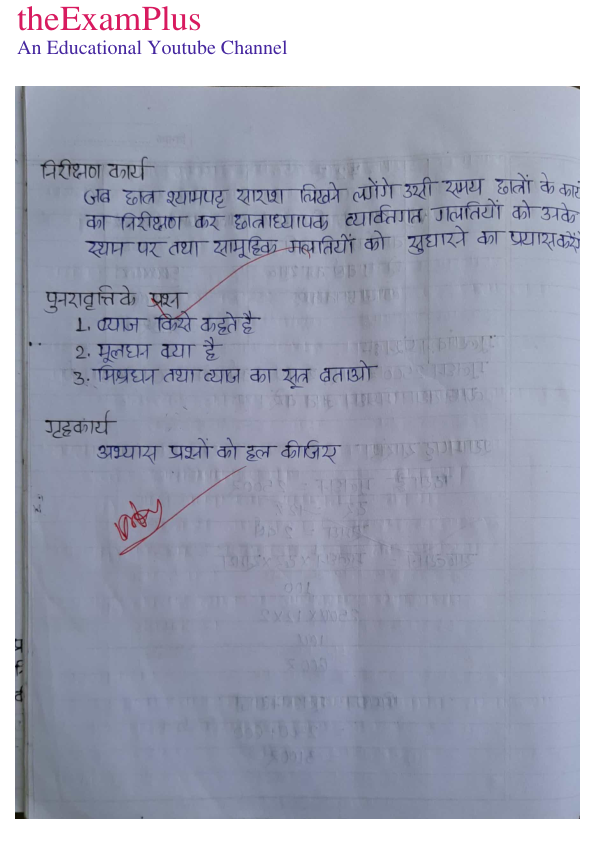 theExamPlus
An Educational Youtube Channel
निरीक्षण कार्य
जब छात्र श्यामपट्ट सारांश लिखने लगेंगे उसी समय छात्रों के कार्य
का निरीक्षण कर छात्राध्यापक व्यक्तिगत गलतियों को उनके
स्थान पर तथा सामूहिक गलतियों को सुधारने का प्रयास करेंगे
पुनरावृत्ति के प्रश्न
1. ब्याज किसे कहते है
2. मूलधन क्या है
3. मिश्रधन तथा ब्याज का सूत्र बताओ
गृहकार्य
अभ्यास प्रश्नों को हल कीजिए